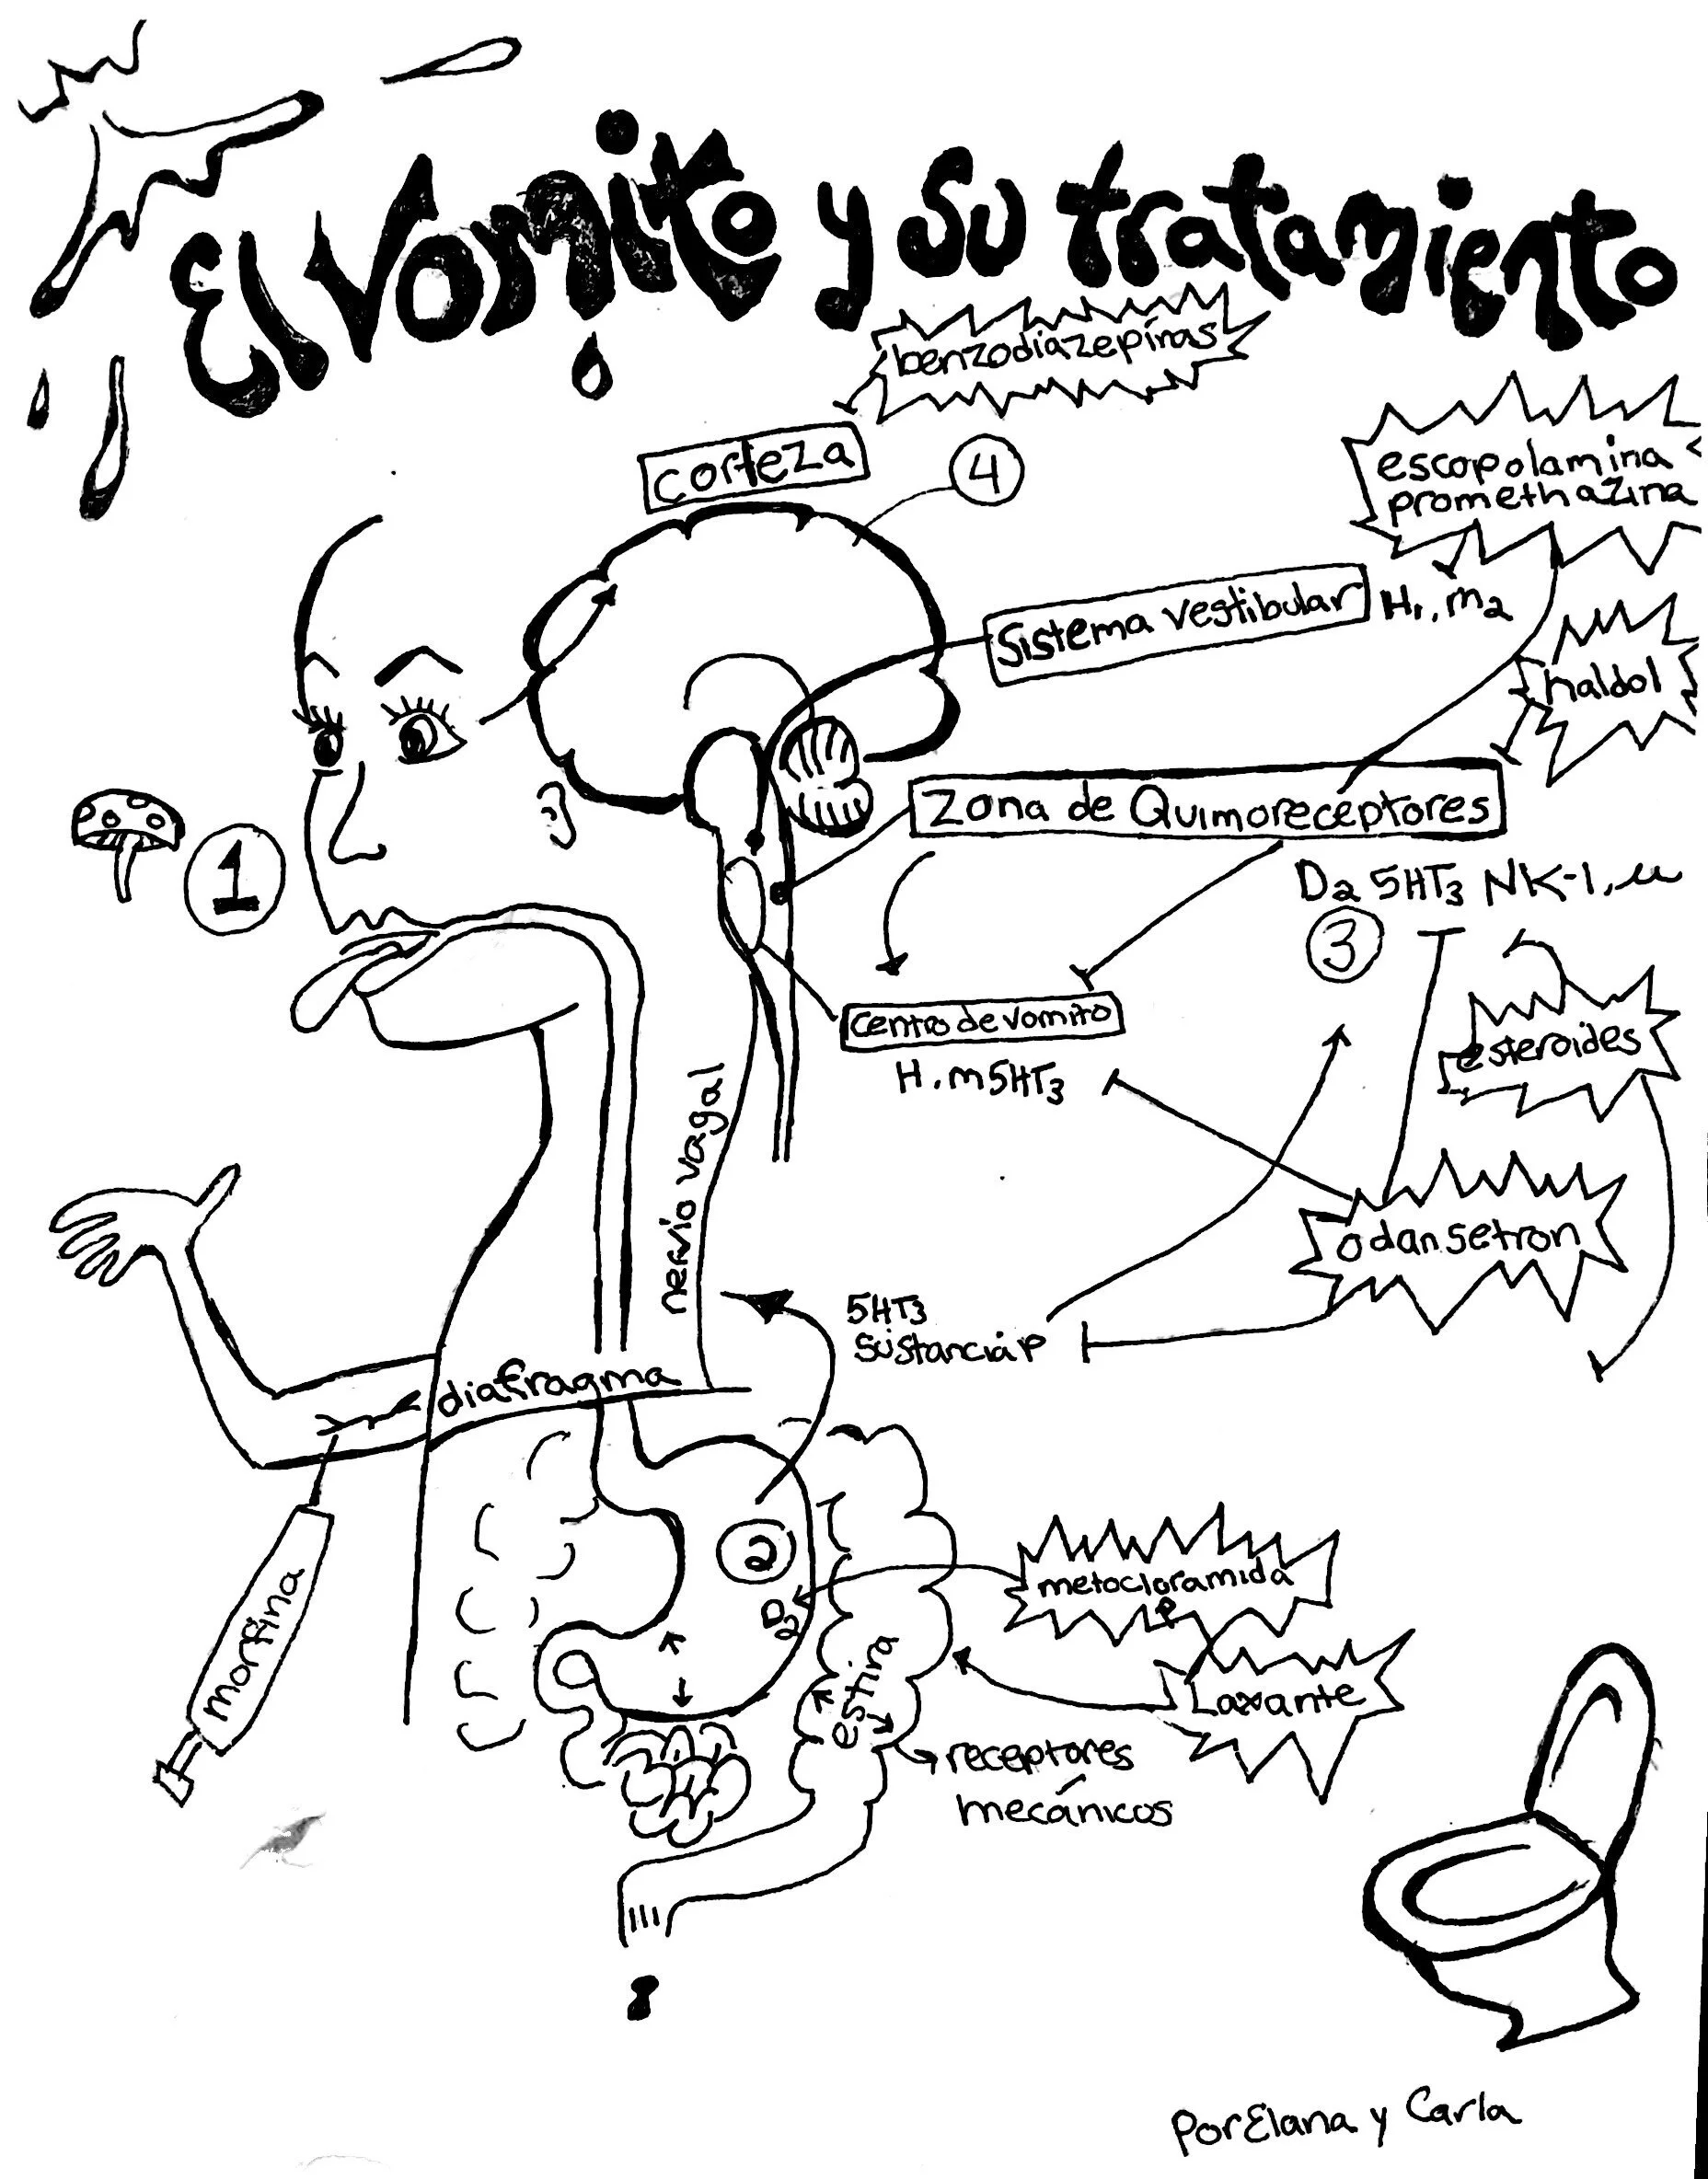 El vomito y su tratamiento
benzodiazepinas
corteza
4
escopolamina
promethazina
Sistema vestibular
H1, m2
haldol
Zona de Quimoreceptores
D2 5HT3 NK-1, u
3
1
esteroides
centro de vomito
H, m 5HT3
nervio vagal
odansetron
5HT3
sustancia P
diafragma
morfina
2
D2
metocloramida
Laxante
estira
receptores
mecánicos
Por Elana y Carla